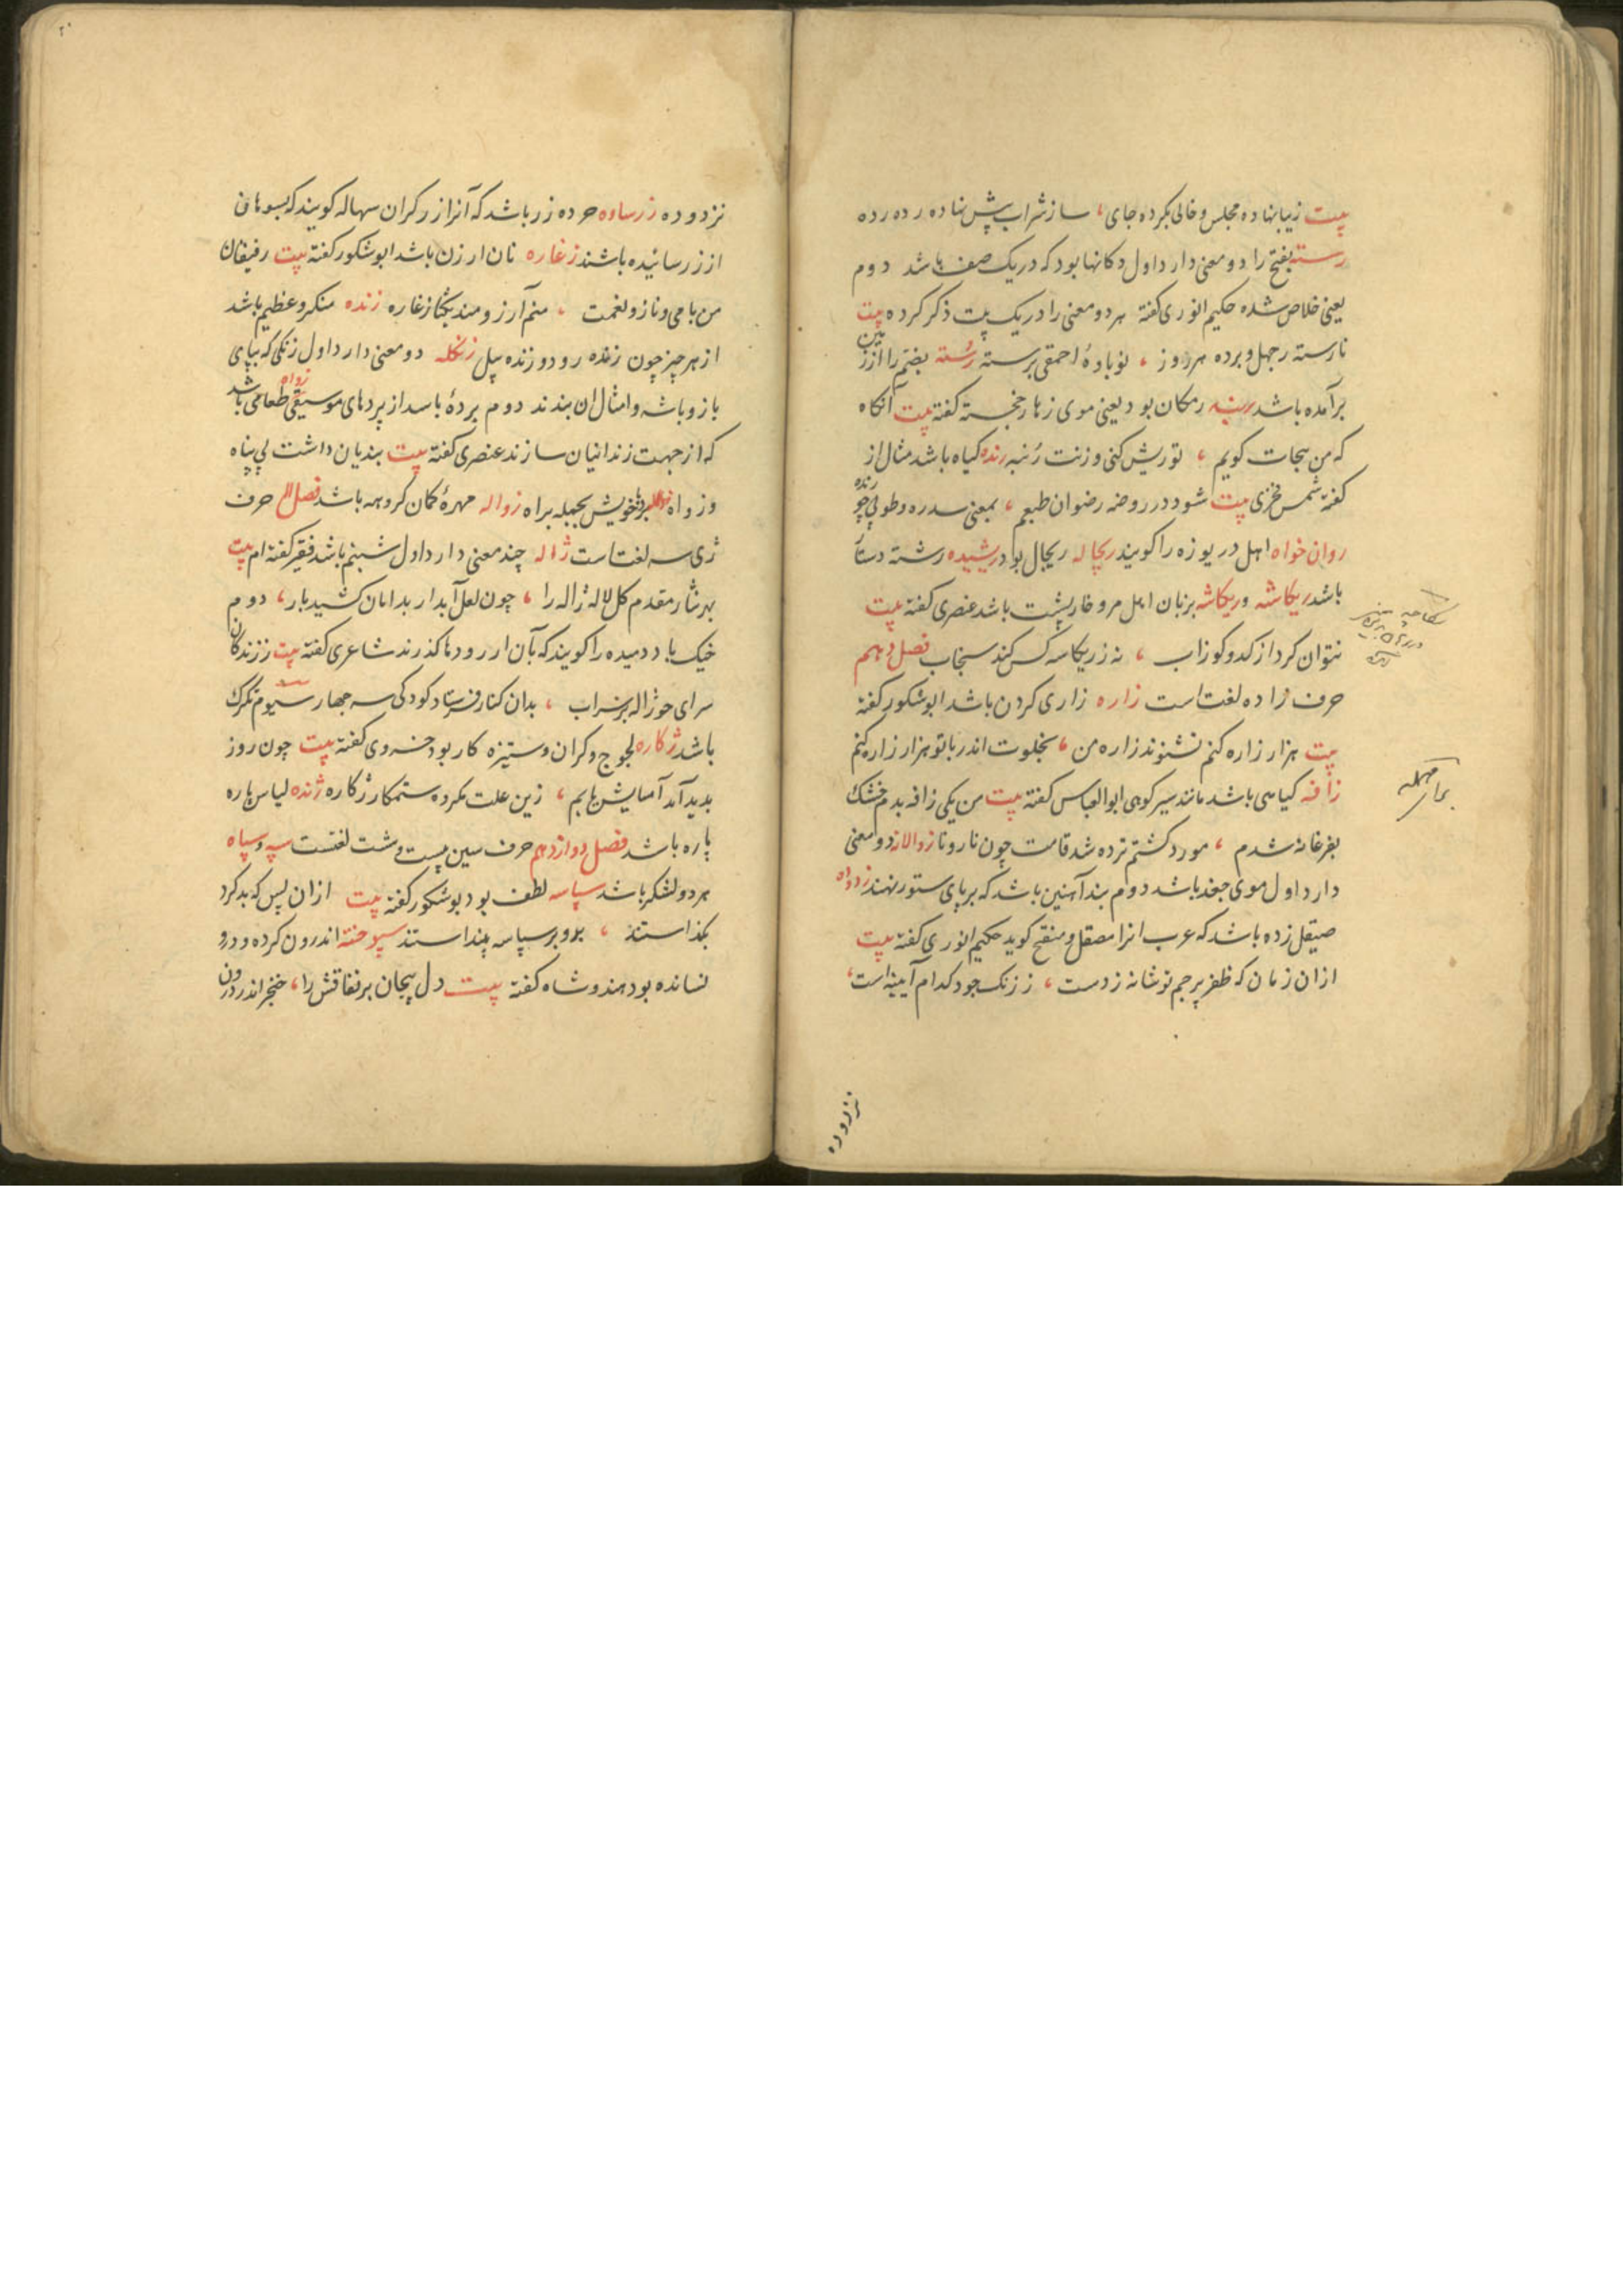 بیت زیبا نهاده مجلس و خالی بکرده جای، ساز شراب پیش نهاده رده رده
رسته بفتح را دو معنی دارد اول دکانها بود که در یک صف باشد دوم
یعنی خلاص شده حکیم انوری کفته هر دو معنی را در یک بیت ذکر کرده بیت
نارسته ز جهل و برده هر روز، نوباوهٔ احمقی برسته رُسته بضم را از زمین
برآمده باشد رمکان بود یعنی موی زهار خجسته کفته بیت آنکاه
که من هجات کویم، تو ریش کنی و زنت رُنبه رنده کیاه باشد مثال از
کفته شمس فخری بیت شود در روضه رضوان طبعم، بمعنی سدره و طوبی چو رنده
روان خواه اهل دریوزه را کویند ریچاله ریچال بود ریشیده رشته دستار
باشد ریکاشه و ریکاشه بزبان اهل مرو خارپشت باشد عنصری کفته بیت
نتوان کرد از کدو کوز آب، نه ز ریکاسه کس کند سنجاب فصل دهم
حرف زا ده لغتاست زاره زاری کردن باشد ابوشکور کفته
بیت هزار زاره کنم نشنوند زاره من، بخلوت اندر با تو هزار زاره کنم
زافه کیاهی باشد مانند سیر کوهی ابوالعباس کفته بیت من یکی زافه بدم خشک
بفرغانه شدم، مورد کشتم تر ده شد قامت چون نارونا زوالانه دو معنی
دارد اول موی جعد باشد دوم بند آهنین باشد که بر پای ستور نهند
صیقل زده باشد که عرب انرا مصقل و منقح کوید حکیم انوری کفته بیت
ازان زمان که ظفر پرچم تو شانه زدست، ز زنک جود کدام آیینه است،
نزدوده
نزدوده زرساوه خرده زر باشد که آنرا زرکران سهاله کویند که بسوهان
از زر سائیده باشند زغاره نان ارزن باشد ابوشکور کفته بیت رفیقان
من با می و ناز و نعمت، منم آرزومند یکتا زغاره زنده منکر و عظیم باشد
از هر چیز چون زنده رود و زنده پیل زنکله دو معنی دارد اول زنکی که بپای
باز و باشه و امثال ان بندند دوم پردهٔ باشد از پردهای موسیقی زواه طعامی باشد
که از جهت زندانیان سازند عنصری کفته بیت بندیان داشت بی پناه
و زواه برد با خویش بجمله براه زواله مهرهٔ کمان کروهه باشد فصل حرف
ژی سه لغتاست ژاله چند معنی دارد اول شبنم باشد فقیر کفته ام بیت
بهر نثار مقدم کل لاله ژاله را، چون لعل آبدار بدامان کشید بار، دوم
خیک باد دمیده را کویند که بآن از رودها کذرند شاعری کفته بیت
باشد ژکاره لجوج و کران و ستیزه کار بود خسروی کفته بیت چون روز
بدید آمد آسایش یابم، زین علت مکروه ستمکار ژکاره ژنده لباس پاره
پاره باشد فصل دوازدهم حرف سین بیست و شت لغتست سپه و سپاه
هر دو لشکر باشد سپاسه لطف بود بوشکور کفته بیت ازان پس که بد کرد
بکذاستند، برو بر سپاسه پنداستند سپوخته اندرون کرده و درو
نسانده بود هندوشاه کفته بیت دل پیچان بر نفاقش را، خنجر اندر درون